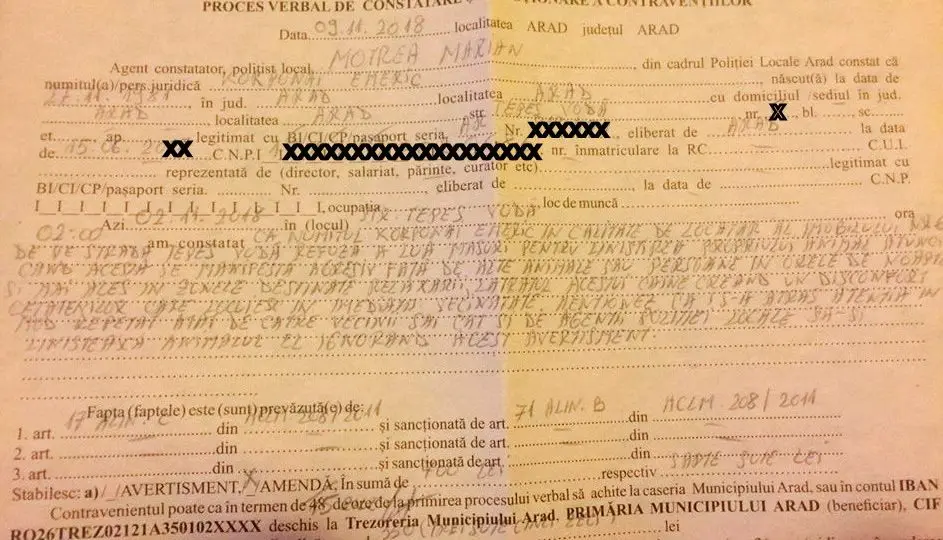 PROCES VERBAL DE CONSTATARE ȘI SANCȚIONARE A CONTRAVENȚIILOR
Data 09.11.2018 localitatea ARAD județul ARAD
Agent constatator, polițist local, MOTREA MARIAN, din cadrul Poliției Locale Arad constat că
numitul(a)/pers. juridică KORPONAI EMERIC născut(ă) la data de
în jud. ARAD localitatea ARAD cu domiciliul/sediul în jud.
ARAD localitatea ARAD str. TEPES VODA nr. X bl. sc.
et. ap. legitimat cu BI/CI/CP/pașaport seria, AR Nr. XXXXXX, eliberat de ARAD la data
de 15.06. XX C.N.P.I XXXXXXXXXXXXXXXXXXXXXX nr. înmatriculare la RC C.U.I.
reprezentată de (director, salariat, părinte, curator etc) legitimat cu
BI/CI/CP/pașaport seria. Nr. , eliberat de , la data de C.N.P.
I_I_I_I_I_I_I_I_I_I_I_I_I_I, ocupația , loc de muncă
Azi 02.11.2018 în (locul) STR. TEPES VODA ora
02:00 am constatat CA NUMITUL KORPONAI EMERIC IN CALITATE DE LOCATAR AL IMOBILULUI NR
DE PE STRADA TEPES VODA REFUZA A LUA MASURI PENTRU LINISTIREA PROPRIULUI ANIMAL ATUNCI
CAND ACESTA SE MANIFESTA AGRESIV FATA DE ALTE ANIMALE SAU PERSOANE IN ORELE DE NOAPTE
SI MAI ALES IN ZONELE DESTINATE RELAXARII, LATRATUL ACESTUI CAINE CREAND UN DISCONFORT
CETATENILOR CARE LOCUIESC IN IMEDIATA VECINATATE MENTIONEZ CA I S-A ATRAS ATENTIA IN
MOD REPETAT ATAT DE CATRE VECINII SAI CAT SI DE AGENTII POLITIEI LOCALE SA-SI
LINISTEASCA ANIMALUL EL IGNORAND ACEST AVERTISMENT.
Fapta (faptele) este (sunt) prevăzută(e) de:
1. art. 17 ALIN. C din HCLM 208/2011 și sancționată de art. 71 ALIN. B din HCLM 208/2011
2. art. din și sancționată de art. din
3. art. din și sancționată de art. din
Stabilesc: a)/_/AVERTISMENT, X AMENDĂ: În sumă de 700 LEI respectiv SAPTE SUTE LEI
Contravenientul poate ca în termen de 48 de ore de la primirea procesului verbal să achite la caseria Municipiului Arad, sau în contul IBAN
RO26TREZ02121A350102XXXX deschis la Trezoreria Municipiului Arad, PRIMĂRIA MUNICIPIULUI ARAD (beneficiar), CIF
lei